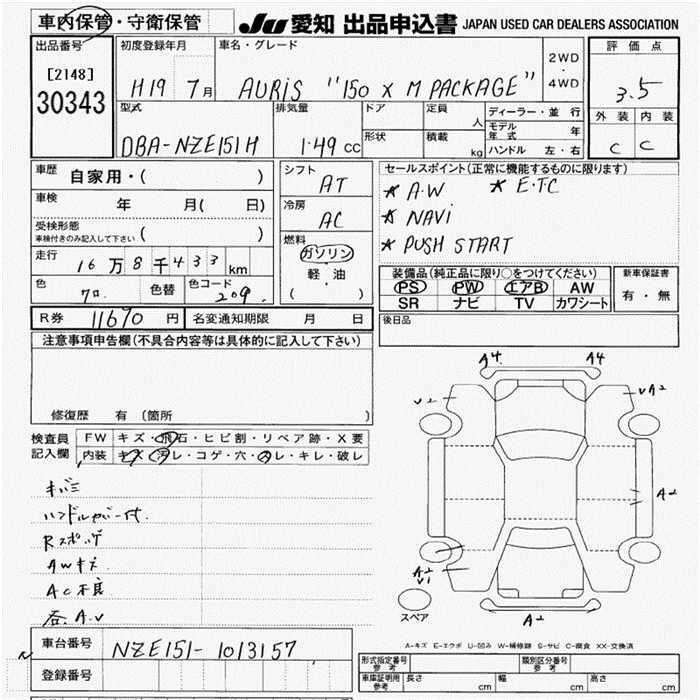 車内保管・守衛保管
JU 愛知 出品申込書 JAPAN USED CAR DEALERS ASSOCIATION
出品番号
[2148]
30343
初度登録年月
H19 7月
車名・グレード
AURIS "150 X M PACKAGE"
2WD
・
4WD
評価点
3.5
外装 内装
C C
型式
DBA-NZE151H
排気量
1.49 CC
ドア
形状
定員
人
積載
kg
ディーラー・並行
モデル年式 年
ハンドル 左・右
車歴
自家用・( )
車検
年 月( 日)
受検形態
車検付きのみ記入して下さい ( )
走行
16万8千433km
色
色替
色コード
209
シフト
AT
冷房
AC
燃料
ガソリン
・
軽油
・
( )
セールスポイント(正常に機能するものに限ります)
* A.W * E.TC
* NAVi
* PUSH START
装備品(純正品に限り○をつけてください)
PS PW エアB AW
SR ナビ TV カワシート
新車保証書
有・無
後日品
R券 11670 円 名変通知期限 月 日
注意事項申告欄(不具合内容等は具体的に記入して下さい)
修復歴 有 (箇所 )
検査員記入欄
FW キズ・飛石・ヒビ割・リペア跡・X要
内装 キズ・汚レ・コゲ・穴・スレ・キレ・破レ
キバミ
ハンドルカバー付.
Rスポイラ
AWキズ
AC不良
各A.U
A4 A4
U2 UA2
A2
A2
U1
A2
スペア
A-キズ E-エクボ U-凹み W-補修跡 S-サビ C-腐食 XX-交換済
車台番号 NZE151-1013157
登録番号
形式指定番号 参考
類別区分番号 参考
車庫証明用 参考 長さ cm 幅 cm 高さ cm